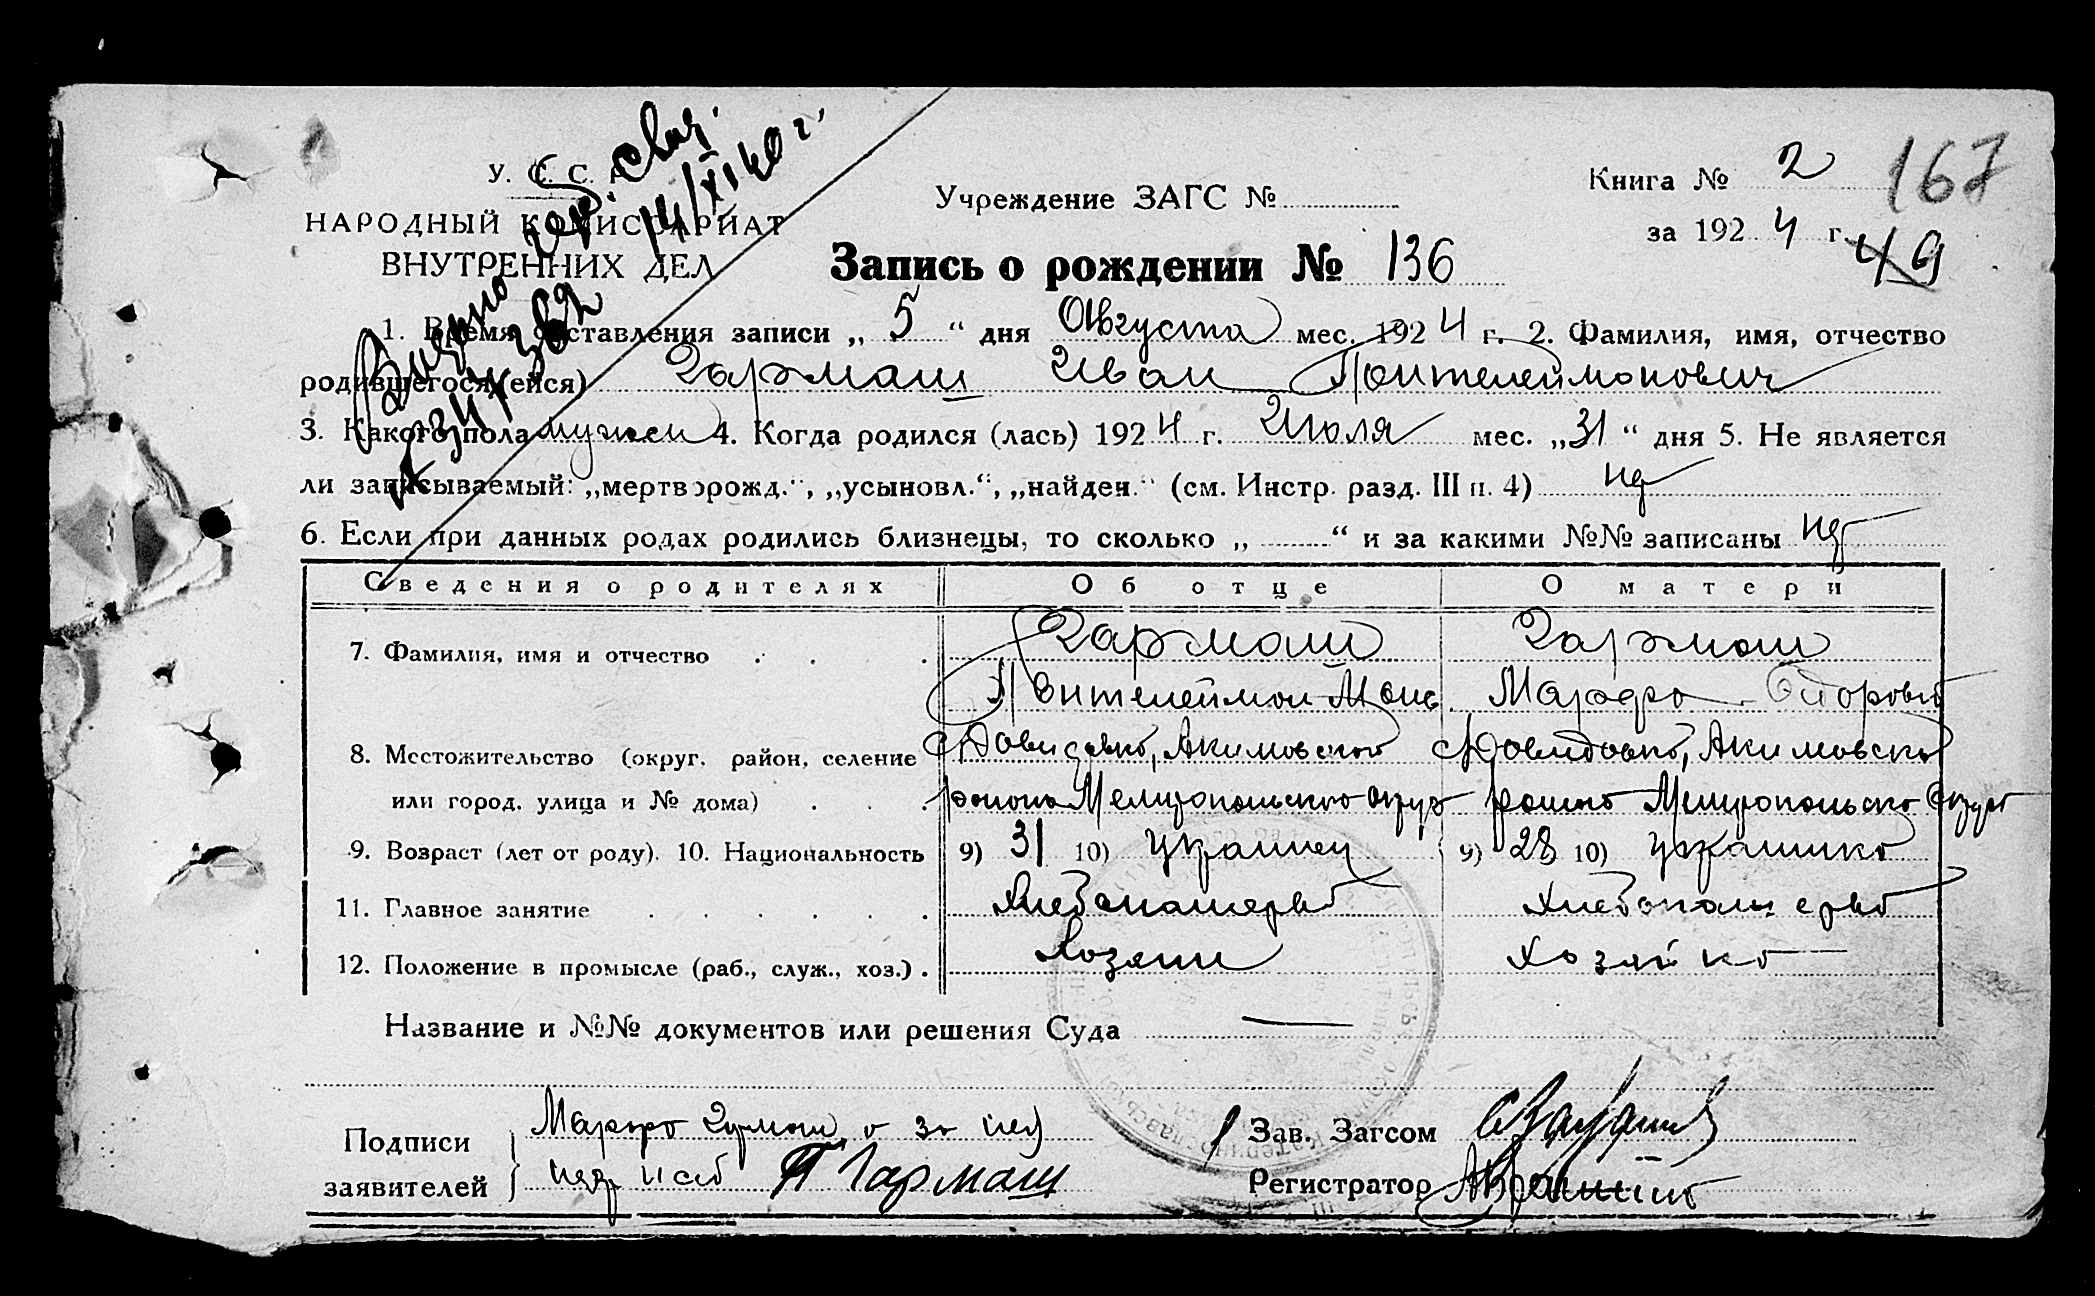 У. С. С. Р.
НАРОДНЫЙ КОМИССАРИАТ
ВНУТРЕННИХ ДЕЛ
Выдано св. 14/XI 40 г.
Учреждение ЗАГС №
Книга № 2
167
за 1924 г.
49
Запись о рождении № 136
1. Время составления записи „ 5 “ дня Августа мес. 1924 г. 2. Фамилия, имя, отчество
родившегося (ейся) Гармаш Иван Пантелеймонович
3. Какого пола мужск 4. Когда родился (лась) 1924 г. Июля мес. „31“ дня 5. Не является
ли записываемый: „мертворожд.“, „усыновл.“, „найден.“ (см. Инстр. разд. III п. 4)
6. Если при данных родах родились близнецы, то сколько „ “ и за какими №№ записаны
Сведения о родителях Об отце О матери
7. Фамилия, имя и отчество Гармаш Гармаш
Пантелеймон Марфа
8. Местожительство (округ, район, селение Давидовка, Акимовского Давидовка, Акимовского
или город, улица и № дома) района Мелитопольского округа района Мелитопольского округа
9. Возраст (лет от роду). 10. Национальность 9) 31 10) украинец 9) 28 10) украинка
11. Главное занятие Хлебопашество Хлебопашество
12. Положение в промысле (раб., служ., хоз.) Хозяин Хозяйка
Название и №№ документов или решения Суда —
Подписи Марфа Гармаш а за
заявителей П Гармаш
Зав. Загсом
Регистратор